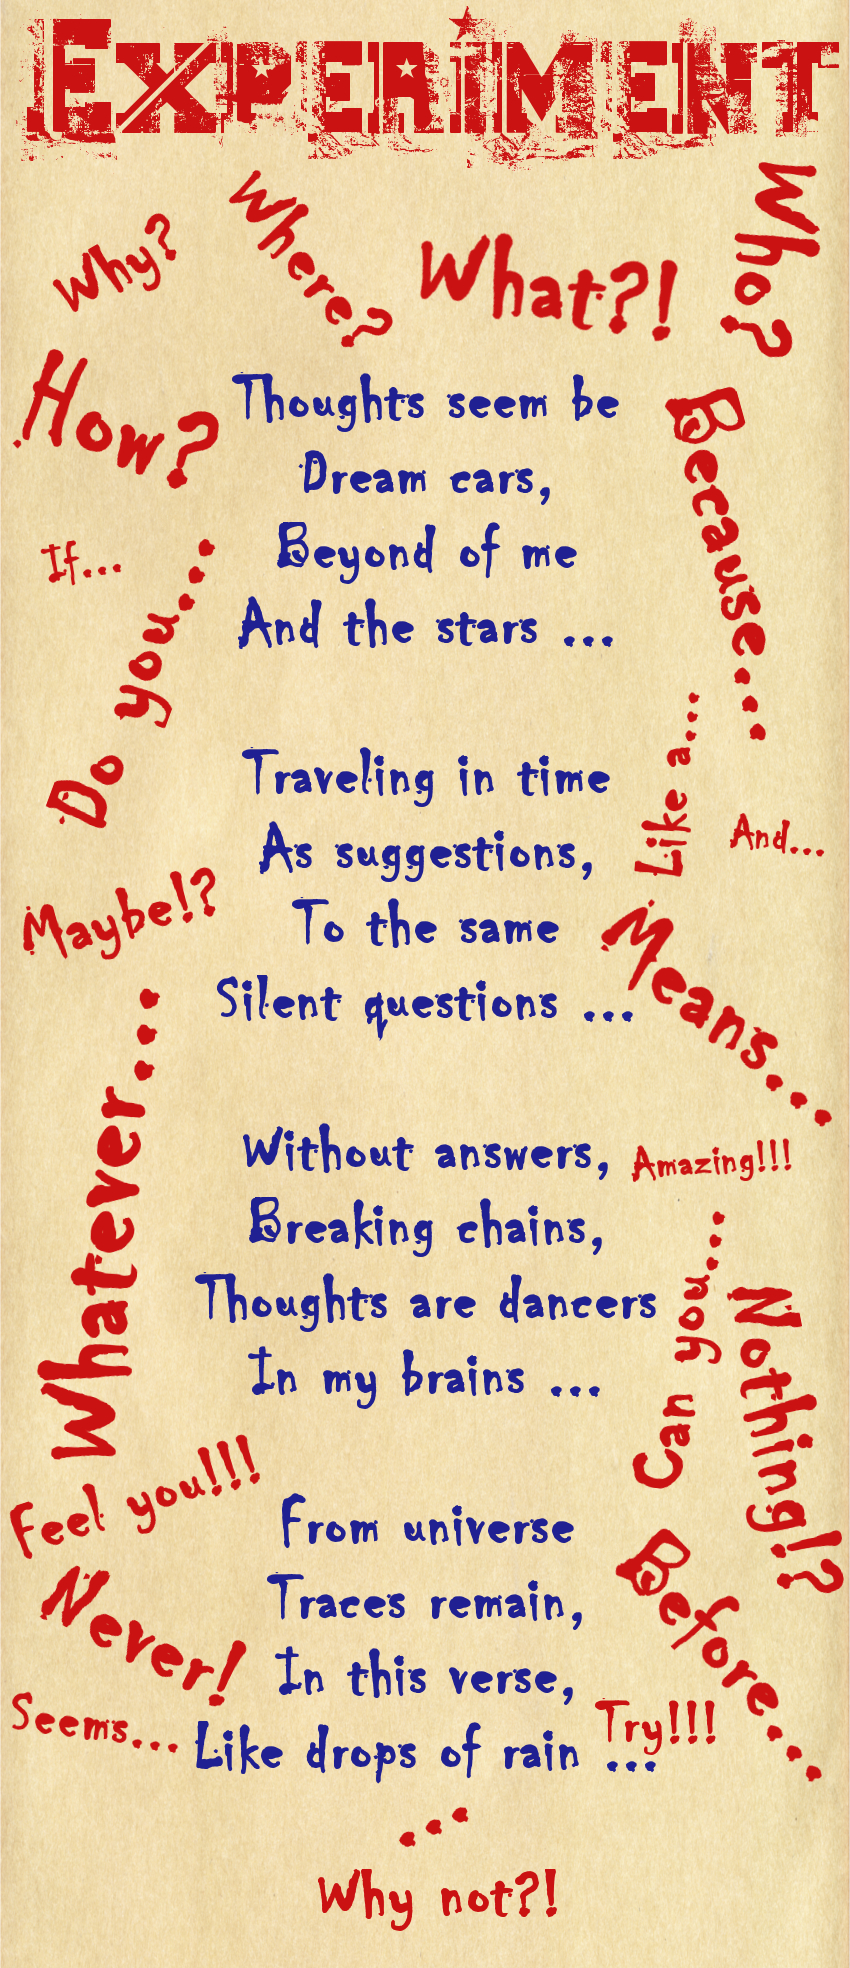 Experiment
Why?
Where?
What?!
Who?
How?
Because...
If...
Do you...
Like a...
And...
Maybe!?
Means...
Whatever...
Amazing!!!
Can you...
Nothing!?
Feel you!!!
Never!
Before...
Seems...
Try!!!
Thoughts seem be
Dream cars,
Beyond of me
And the stars ...
Traveling in time
As suggestions,
To the same
Silent questions ...
Without answers,
Breaking chains,
Thoughts are dancers
In my brains ...
From universe
Traces remain,
In this verse,
Like drops of rain ...
...
Why not?!